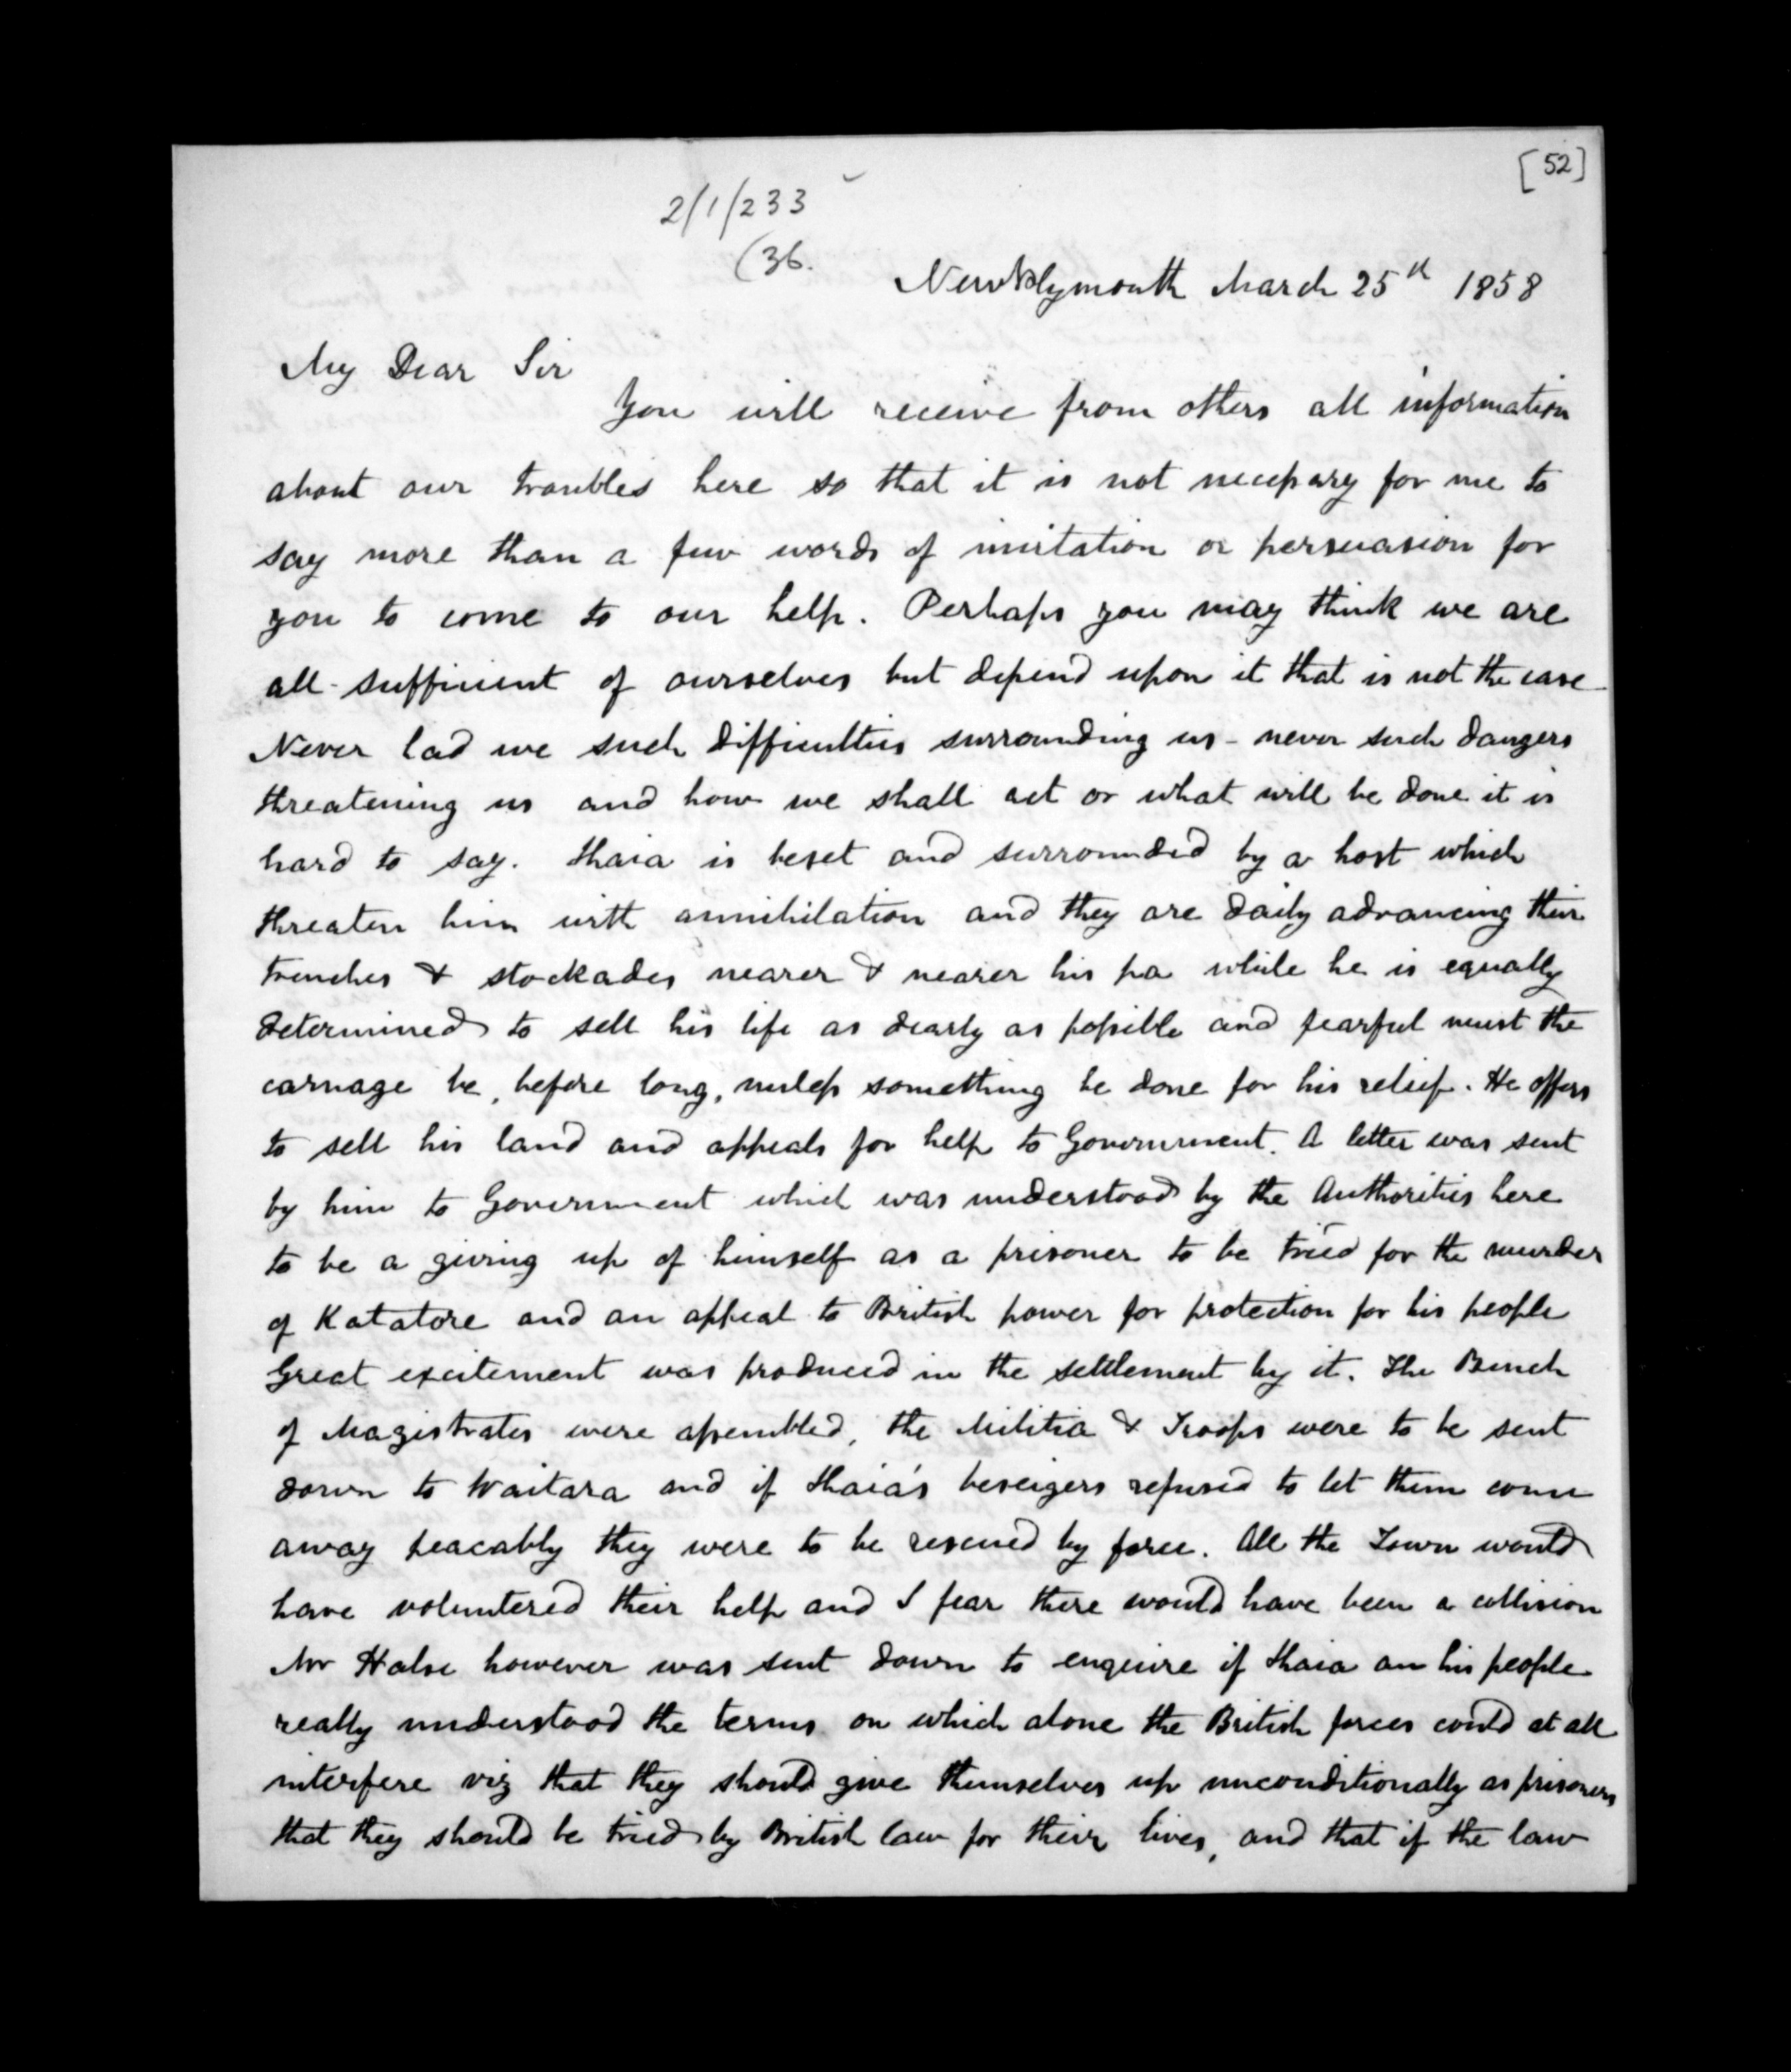 [52]
2/1/233
(36.
New Plymouth March 25th 1858
My Dear Sir
You will receive from others all information
about our troubles here so that it is not necessary for me to
say more than a few words of invitation or persuasion for
you to come to our help. Perhaps you may think we are
all-sufficient of ourselves but depend upon it that is not the case
Never had we such difficulties surrounding us - never such dangers
threatening us and how we shall act or what will be done it is
hard to say. Ihaia is beset and surrounded by a host which
threaten him with annihilation and they are daily advancing their
trenches & stockades nearer & nearer his pa while he is equally
determined to sell his life as dearly as possible and fearful must the
carnage be, before long, unless something be done for his relief. He offers
to sell his land and appeals for help to Government. A letter was sent
by him to Government which was understood by the Authorities here
to be a giving up of himself as a prisoner to be tried for the murder
of Katatore and an appeal to British power for protection for his people
Great excitement was produced in the settlement by it. The Bench
of Magistrates were assembled, the Militia & Troops were to be sent
down to Waitara and if Ihaia's beseigers refused to let them come
away peacably they were to be rescued by force. All the Town would
have voluntered their help and I fear there would have been a collision
Mr Halse however was sent down to enquire if Ihaia an his people
really understood the terms on which alone the British forces could at all
interfere viz that they should give themselves up unconditionally as prisoners
that they should be tried by British law for their lives, and that if the law